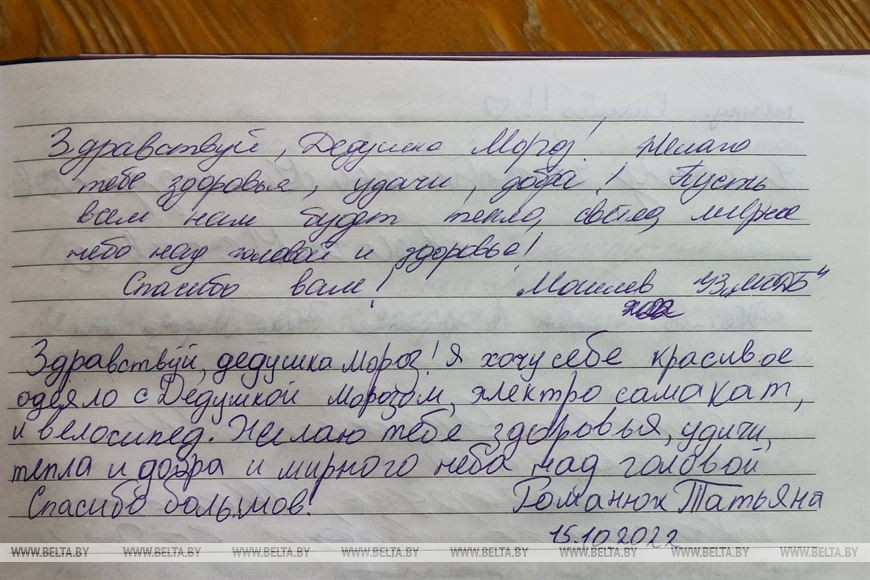 Здравствуй, Дедушка Мороз! Желаю
тебе здоровья, удачи, добра! Пусть
всем нам будет тепло, светло, мирное
небо над головой и здоровье!
Спасибо вам! Могилев УЗ „МОДБ"
Здравствуй, дедушка Мороз! Я хочу себе красивое
одеяло с Дедушкой Морозом, электро самакат,
и велосипед. Желаю тебе здоровья, удачи,
тепла и добра и мирного неба над головой
Спасибо большов! Романюк Татьяна
15.10 2022
WWW.BELTA.BY WWW.BELTA.BY WWW.BELTA.BY WWW.BELTA.BY WWW.BELTA.BY WWW.BELTA.BY